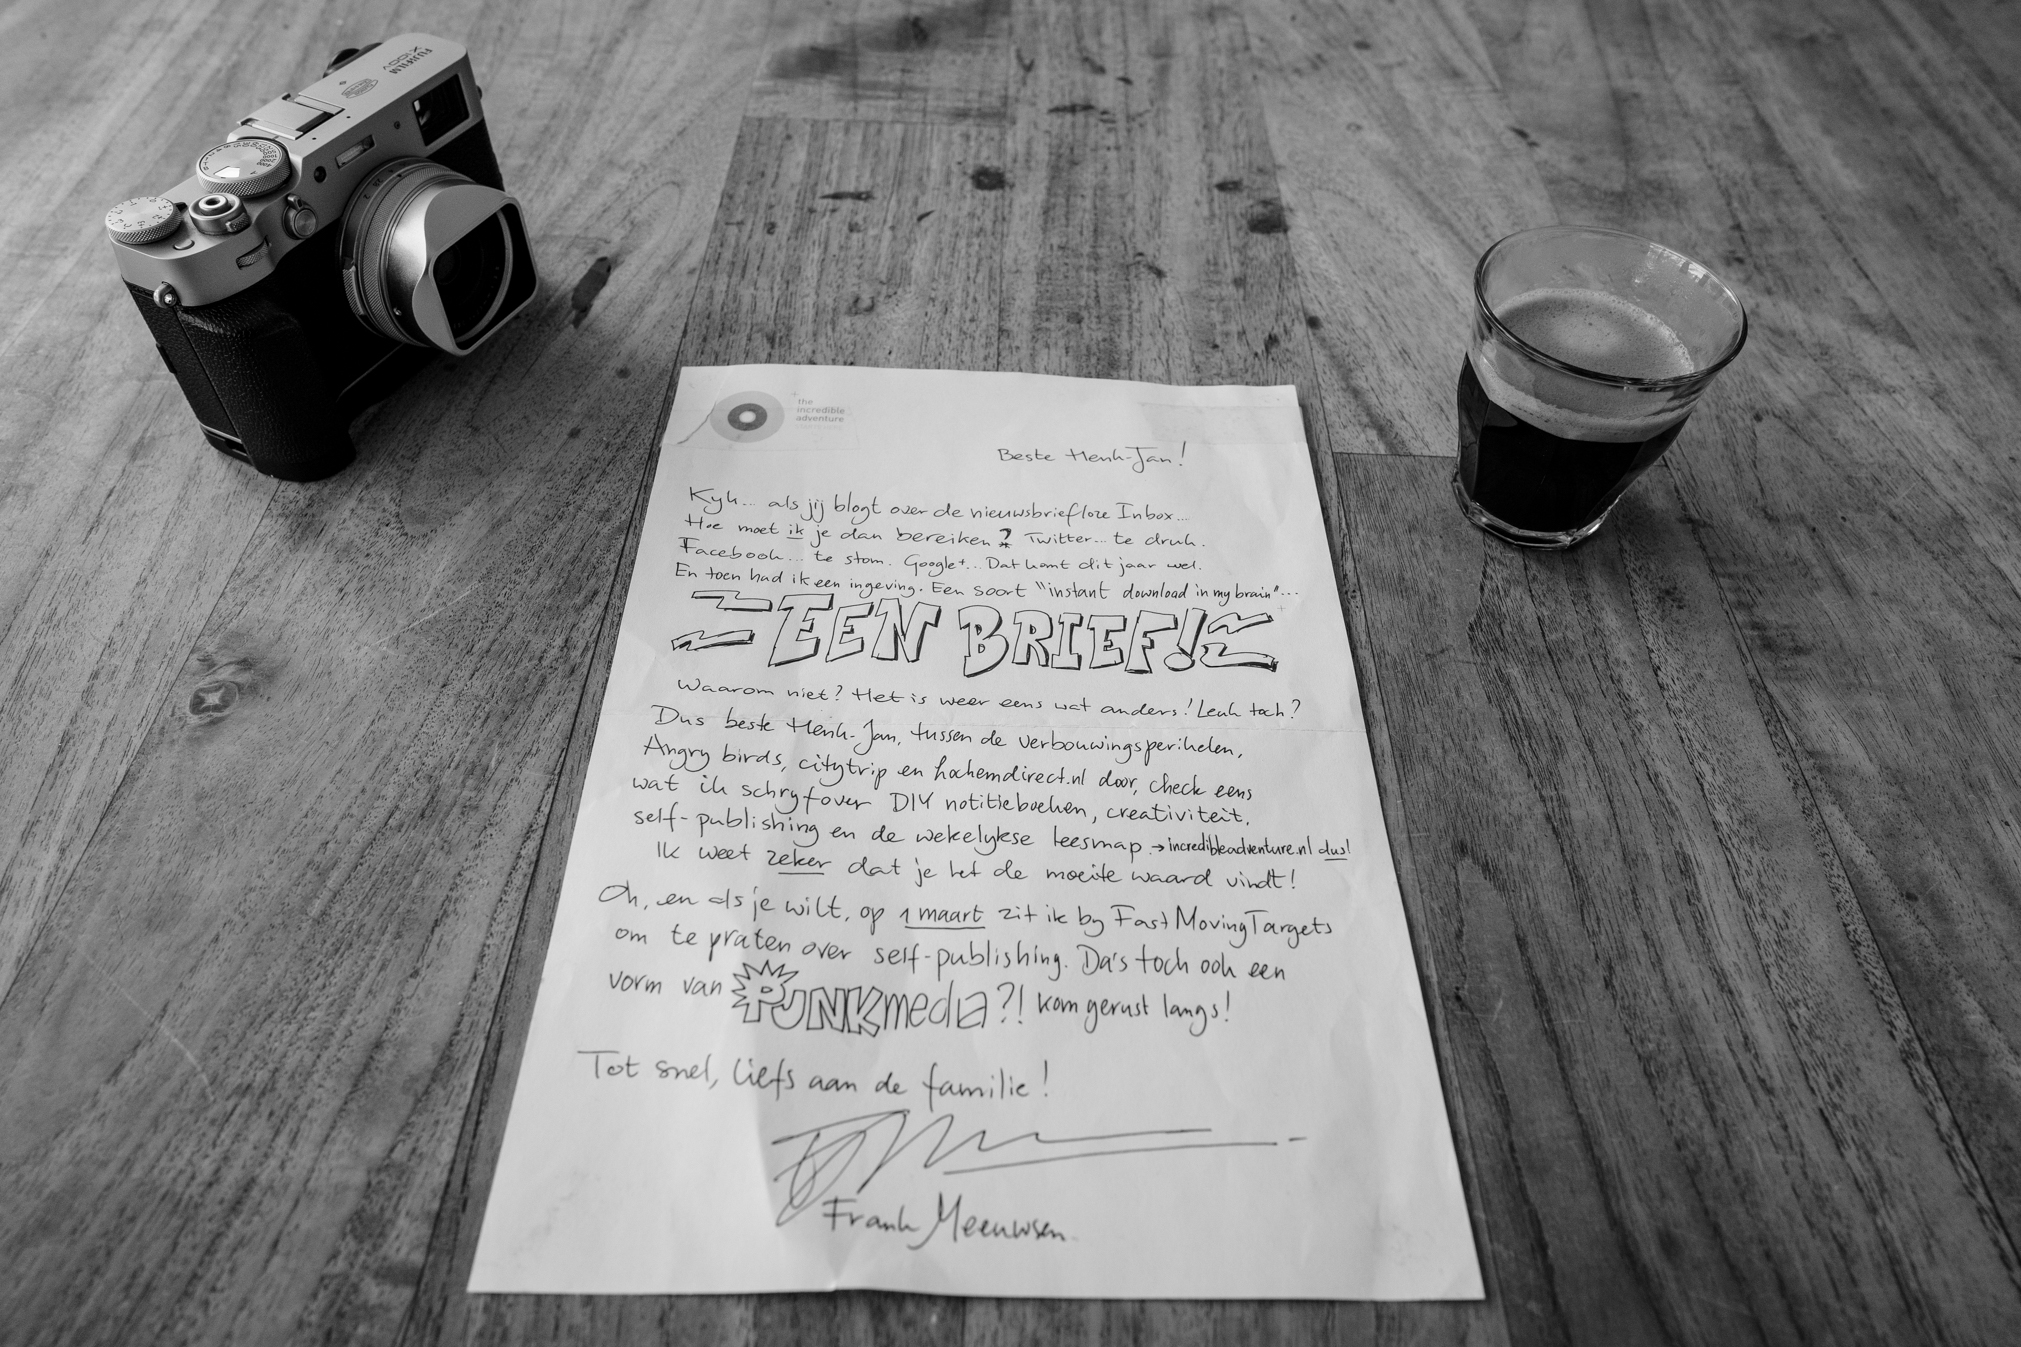 FUJIFILM
X100V
the
incredible
adventure
Beste Henk-Jan!
Kyk... als jij blogt over de nieuwsbriefloze Inbox....
Hoe moet ik je dan bereiken? Twitter... te druk.
Facebook... te stom. Google+... Dat komt dit jaar wel.
En toen had ik een ingeving. Een soort "instant download in my brain"...
EEN BRIEF!
Waarom niet? Het is weer eens wat anders! Leuk toch?
Dus beste Henk-Jan, tussen de verbouwingsperikelen,
Angry birds, citytrip en hockemdirect.nl door, check eens
wat ik schryf over DIY notitieboeken, creativiteit,
self-publishing en de wekelykse leesmap → incredibleadventure.nl dus!
Ik weet zeker dat je het de moeite waard vindt!
Oh, en als je wilt, op 1 maart zit ik by FastMovingTargets
om te praten over self-publishing. Da's toch ook een
vorm van PUNKmedia?! kom gerust langs!
Tot snel, liefs aan de familie!
Frank Meeuwsen